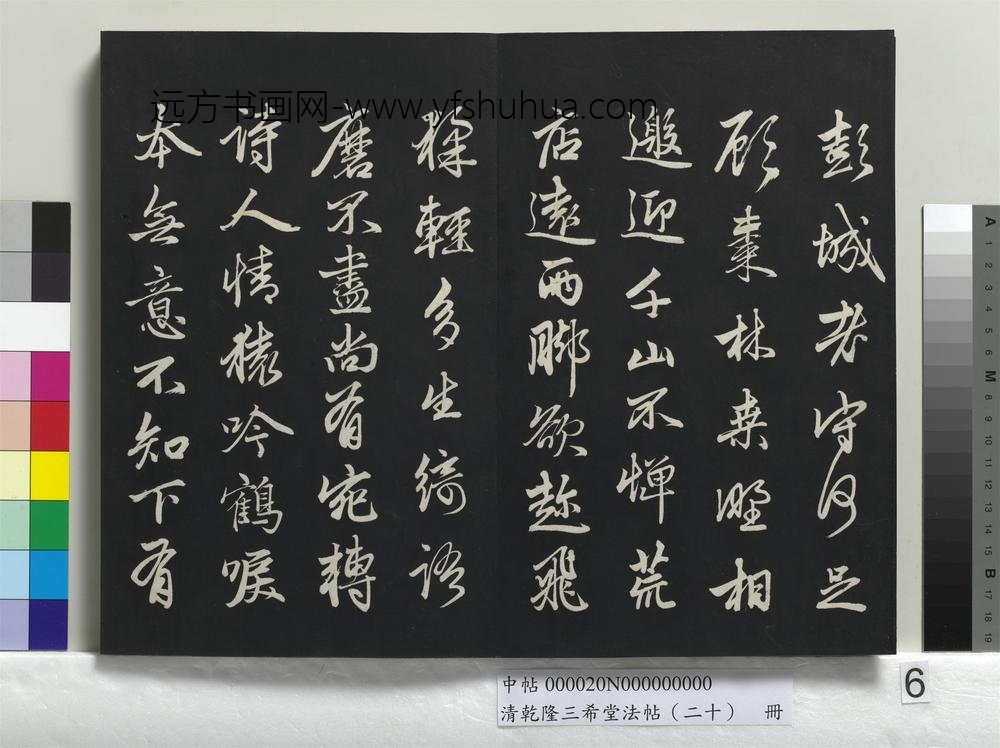 远方书画网-www.yfshuhua.com
彭城老守何足
顧棗林桑野相
邀迎千山不憚荒
店遠兩脚欲趁飛
猱輕多生綺語
磨不盡尚有宛轉
詩人情猿吟鶴唳
本無意不知下有
中帖 000020N000000000
清乾隆三希堂法帖（二十） 冊
6
A
1
2
3
4
5
6
M
8
9
10
11
12
13
14
15
B
17
18
19